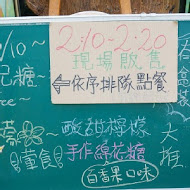 2/10-2/20
現場販售
←依序排隊點餐
/10~
糖
酸甜檸檬
手作綿花糖
童食
百香果口味
大推